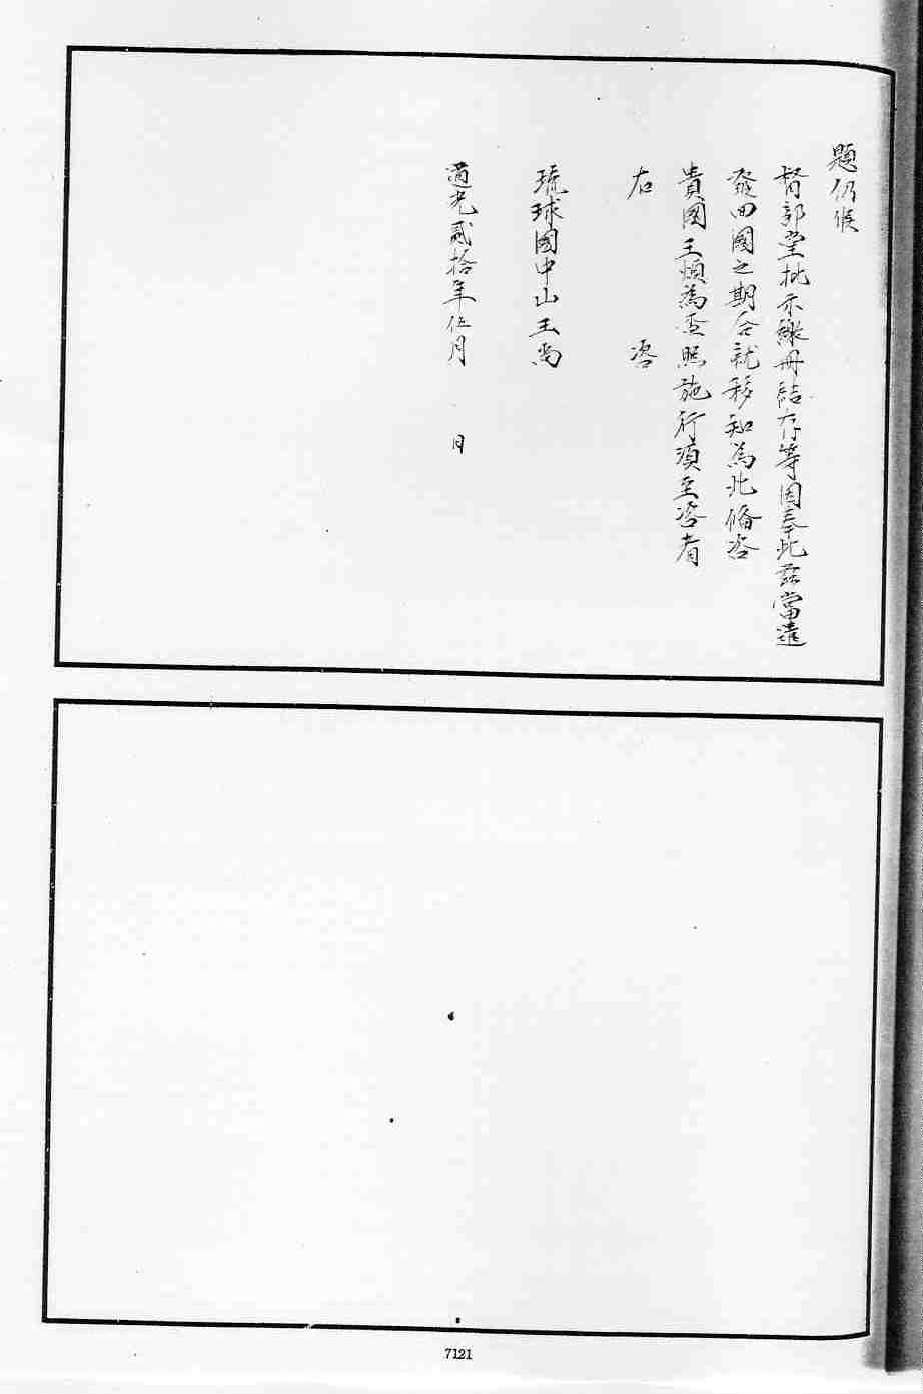 題仍候
督部堂批示繳冊結存等因奉此茲當遣
發回國之期合就移知為此備咨
貴國王煩為查照施行須至咨者
右　咨
琉球國中山王尚
道光貳拾年伍月　日
7121